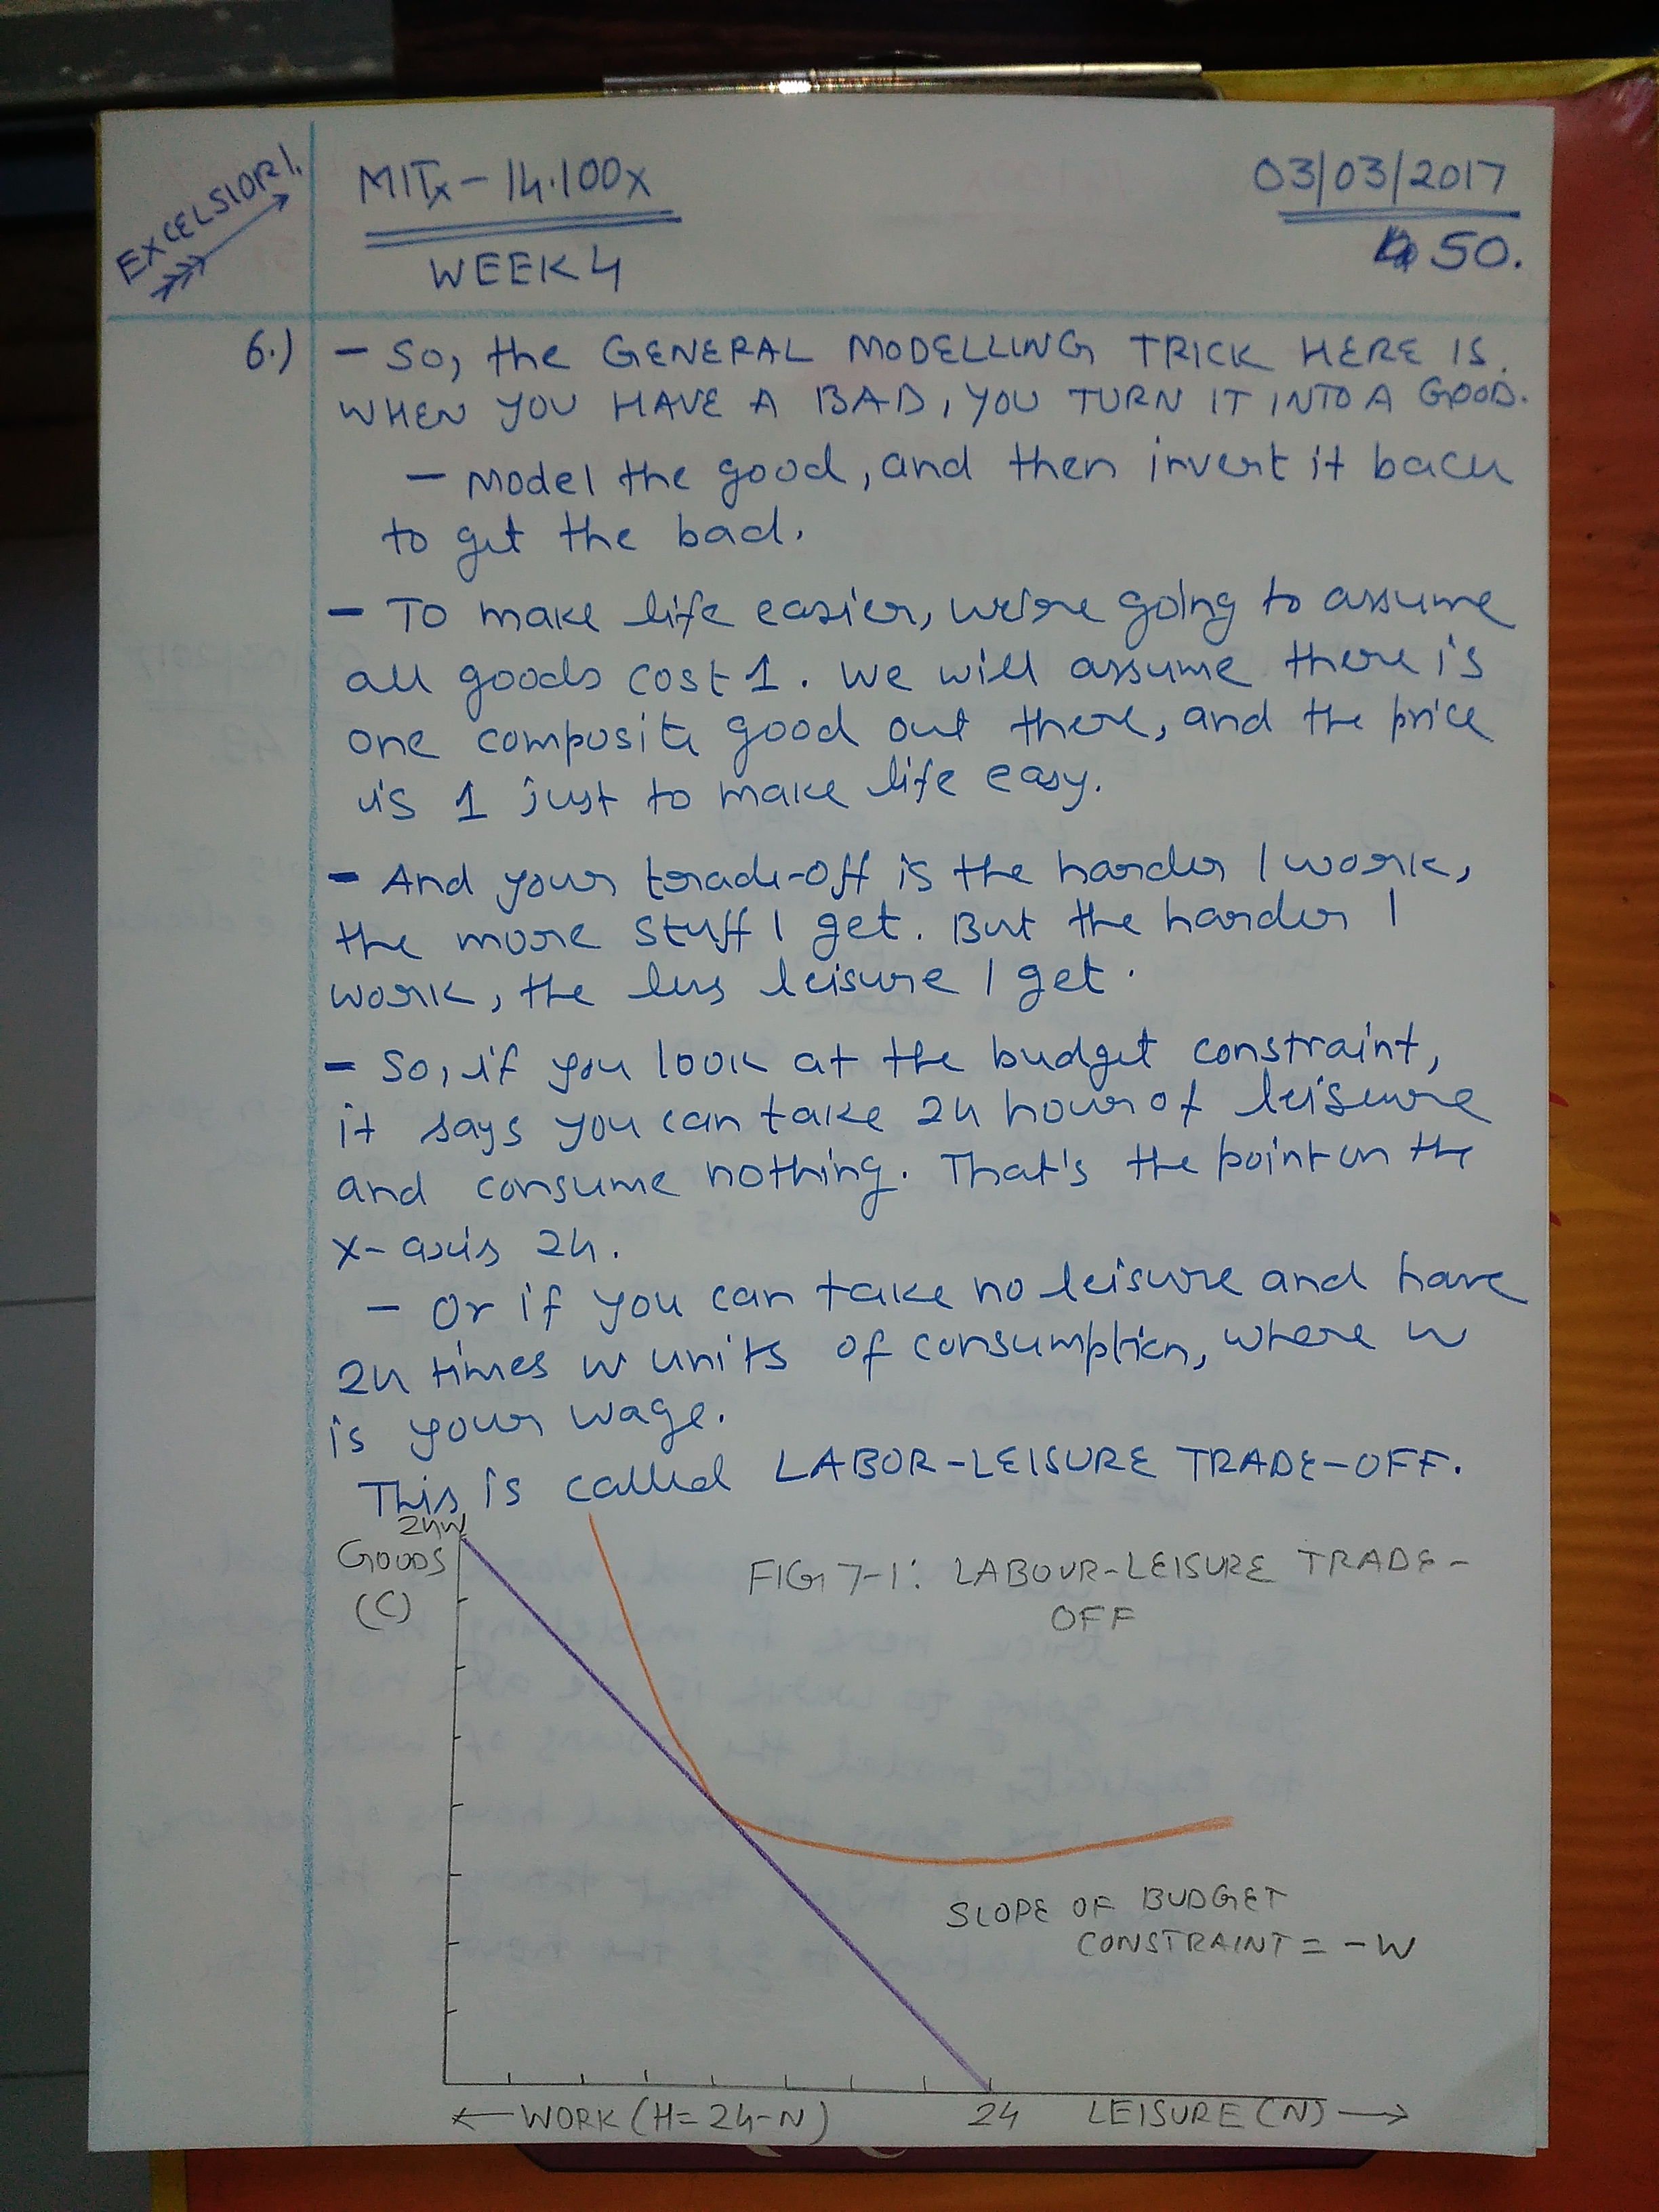 EXCELSIOR!
MITx - 14.100x
03/03/2017
WEEK 4
50.
6.) - So, the GENERAL MODELLING TRICK HERE IS
WHEN YOU HAVE A BAD, YOU TURN IT INTO A GOOD.
- Model the good, and then invert it back
to get the bad.
- To make life easier, we're going to assume
all goods cost 1. We will assume there is
one composite good out there, and the price
is 1 just to make life easy.
- And your trade-off is the harder I work,
the more stuff I get. But the harder I
work, the less leisure I get.
- So, if you look at the budget constraint,
it says you can take 24 hours of leisure
and consume nothing. That's the point on the
x-axis 24.
- Or if you can take no leisure and have
24 times w units of consumption, where w
is your wage.
This is called LABOR-LEISURE TRADE-OFF.
24W
GOODS
(C)
FIG 7-1: LABOUR-LEISURE TRADE-
OFF
SLOPE OF BUDGET
CONSTRAINT = -W
← WORK (H=24-N)
24
LEISURE (N) →